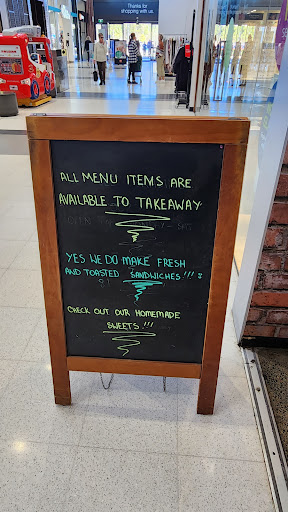 Thanks for
shopping with us.
ALL MENU ITEMS ARE
AVAILABLE TO TAKEAWAY
YES WE DO MAKE FRESH
AND TOASTED SANDWICHES!!!
CHECK OUT OUR HOMEMADE
SWEETS!!!